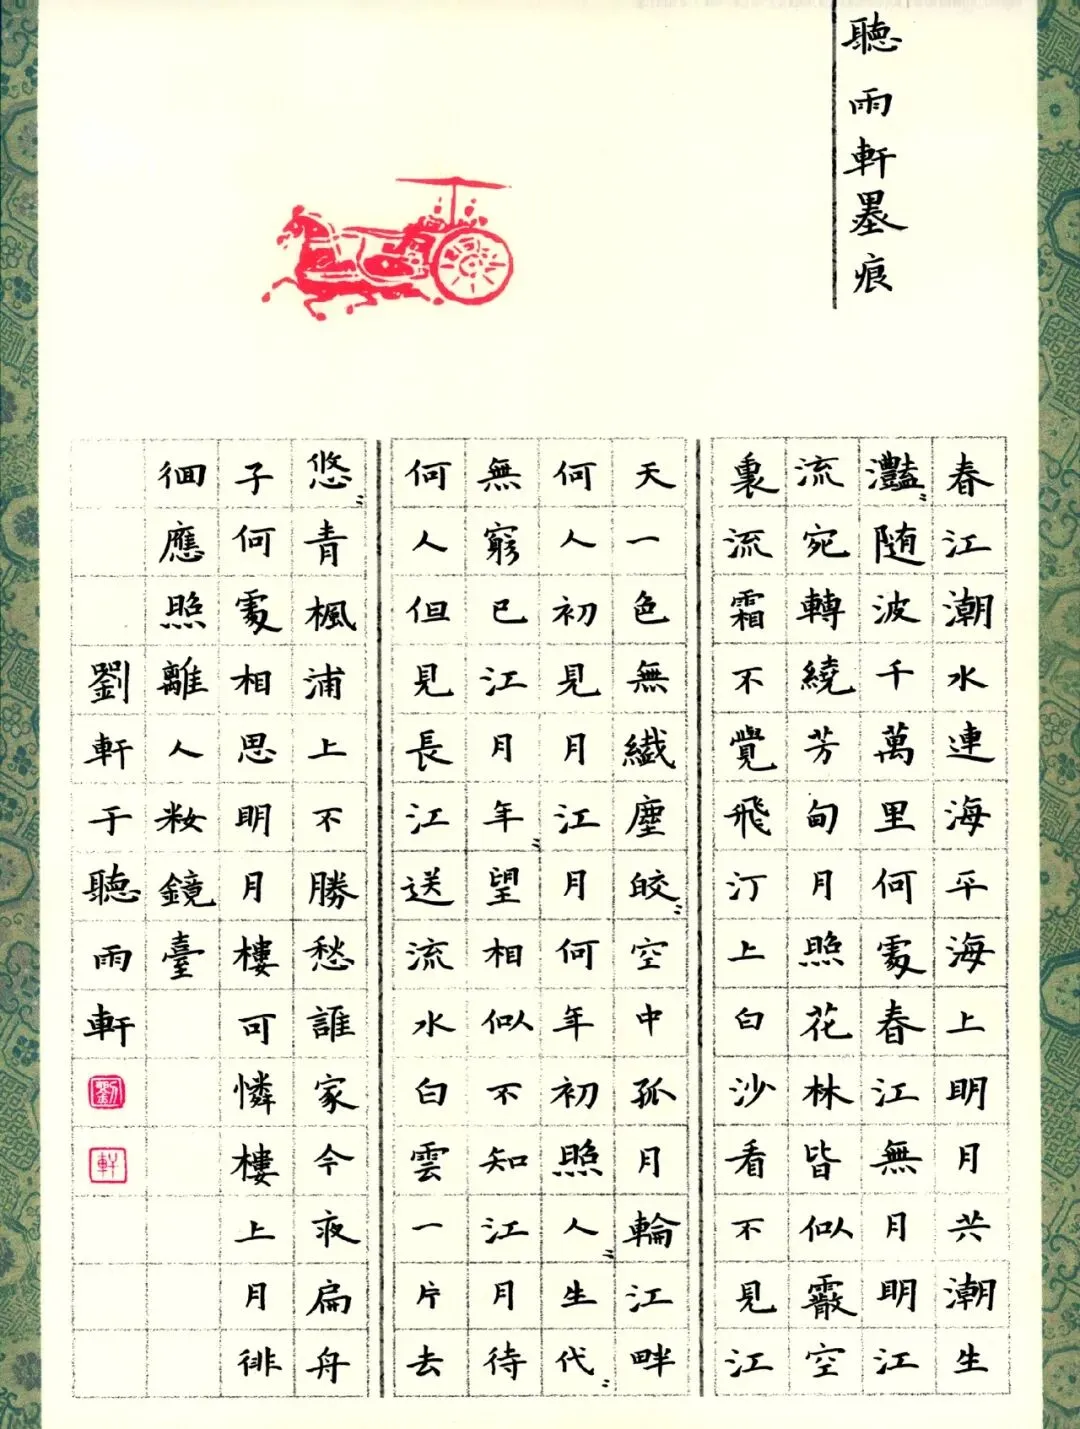 聽雨軒墨痕
春江潮水連海平海上明月共潮生
灩〻随波千萬里何處春江無月明江
流宛轉繞芳甸月照花林皆似霰空
裏流霜不覺飛汀上白沙看不見江
天一色無纖塵皎〻空中孤月輪江畔
何人初見月江月何年初照人〻生代〻
無窮已江月年〻望相似不知江月待
何人但見長江送流水白雲一片去
悠〻青楓浦上不勝愁誰家今夜扁舟
子何處相思明月樓可憐樓上月徘
徊應照離人籹鏡臺
劉軒于聽雨軒
劉
軒